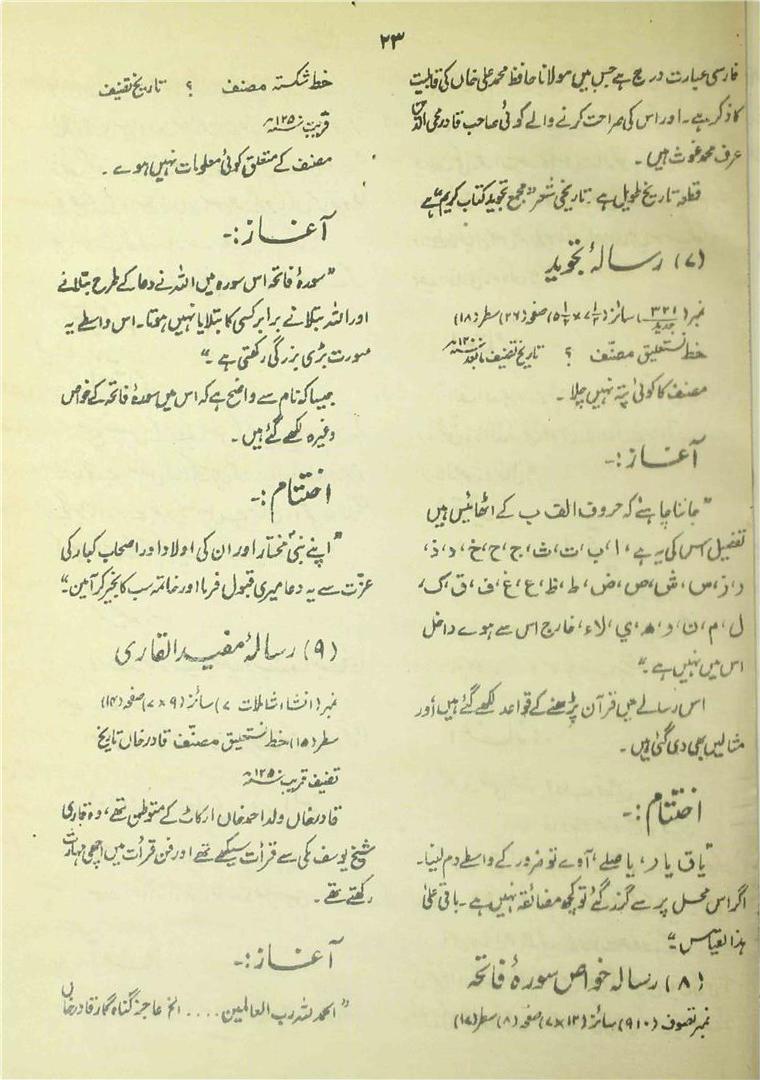 ۲۳
فارسی عبارت درج ہے جس میں مولانا حافظ محمد علی خاں کی قابلیت
کا ذکر ہے۔ اور اس کی صراحت کرنے والے کوئی صاحب قادر محی الدین
عرف محمد غوث ہیں۔
قطعہ تاریخ طویل ہے۔ تاریخی شعر "مجمع تجوید کتاب کریم" ہے
(۷) رسالۂ تجوید
نمبر (۳۲۱ جدید) سائز (۷½ × ۵½) صفحہ (۲۶) سطر (۱۸)
خط نستعلیق مصنّف ؟ تاریخ تصنیف مابعد ۱۲۰۰ھ
مصنف کا کوئی پتہ نہیں چلا۔
آغاز:۔
"جاننا چاہئے کہ حروف الف ب کے اٹھائیس ہیں
تفصیل اس کی یہ ہے، ا، ب، ت، ث، ج، ح، خ، د، ذ،
ر، ز، س، ش، ص، ض، ط، ظ، ع، غ، ف، ق، ک،
ل، م، ن، و، ھ، ي، لاء، خارج اس سے ہوے داخل
اس میں نہیں ہے۔"
اس رسالے میں قرآن پڑھنے کے قواعد لکھے گئے ہیں اور
مثالیں بھی دی گئی ہیں۔
اختتام:۔
"یا ق یا ر، یا صلے، آوے تو ضرور کے واسطے دم لینا۔
اگر اس محل پر سے گزر گئے تو کچھ مضائقہ نہیں ہے۔ باقی علیٰ
ہذا القیاس۔"
(۸) رسالہ خواص سورۂ فاتحہ
نمبر تصوف (۹۱۰) سائز (۱۲×۷) صفحہ (۸) سطر (۱۷)
خط شکستہ مصنف ؟ تاریخ تصنیف
قریب ۱۲۵۰ھ
مصنف کے متعلق کوئی معلومات نہیں ہوے۔
آغاز:۔
"سورۂ فاتحہ اس سورہ میں اللہ نے دعا کے طرح بتلانے
اور اللہ بتلانے برابر کسی کا بتلایا نہیں ہوتا۔ اس واسطے یہ
سورت بڑی بزرگی رکھتی ہے۔"
جیسا کہ نام سے واضح ہے کہ اس میں سورۂ فاتحہ کے خواص
وغیرہ لکھے گئے ہیں۔
اختتام:۔
"اپنے نبیؐ مختار اور ان کی اولاد اور اصحاب کبار کی
عزّت سے یہ دعا میری قبول فرما اور خاتمہ سب کا بخیر کر آمین۔"
(۹) رسالۂ مفید القاری
نمبر (انشاء شاملات ۷) سائز (۹×۷) صفحہ (۱۴)
سطر (۱۵) خط نستعلیق مصنّف قادر خاں تاریخ
تصنیف قریب ۱۲۵۰ھ
قادر خاں ولد احمد خاں ارکاٹ کے متوطن تھے، وہ قاری
شیخ یوسف مکی سے قرأت سیکھے تھے اور فن قرأت میں اچھی مہارت
رکھتے تھے۔
آغاز:۔
"الحمد للہ رب العالمین .... الخ عاجز گناہ گار قادر خاں